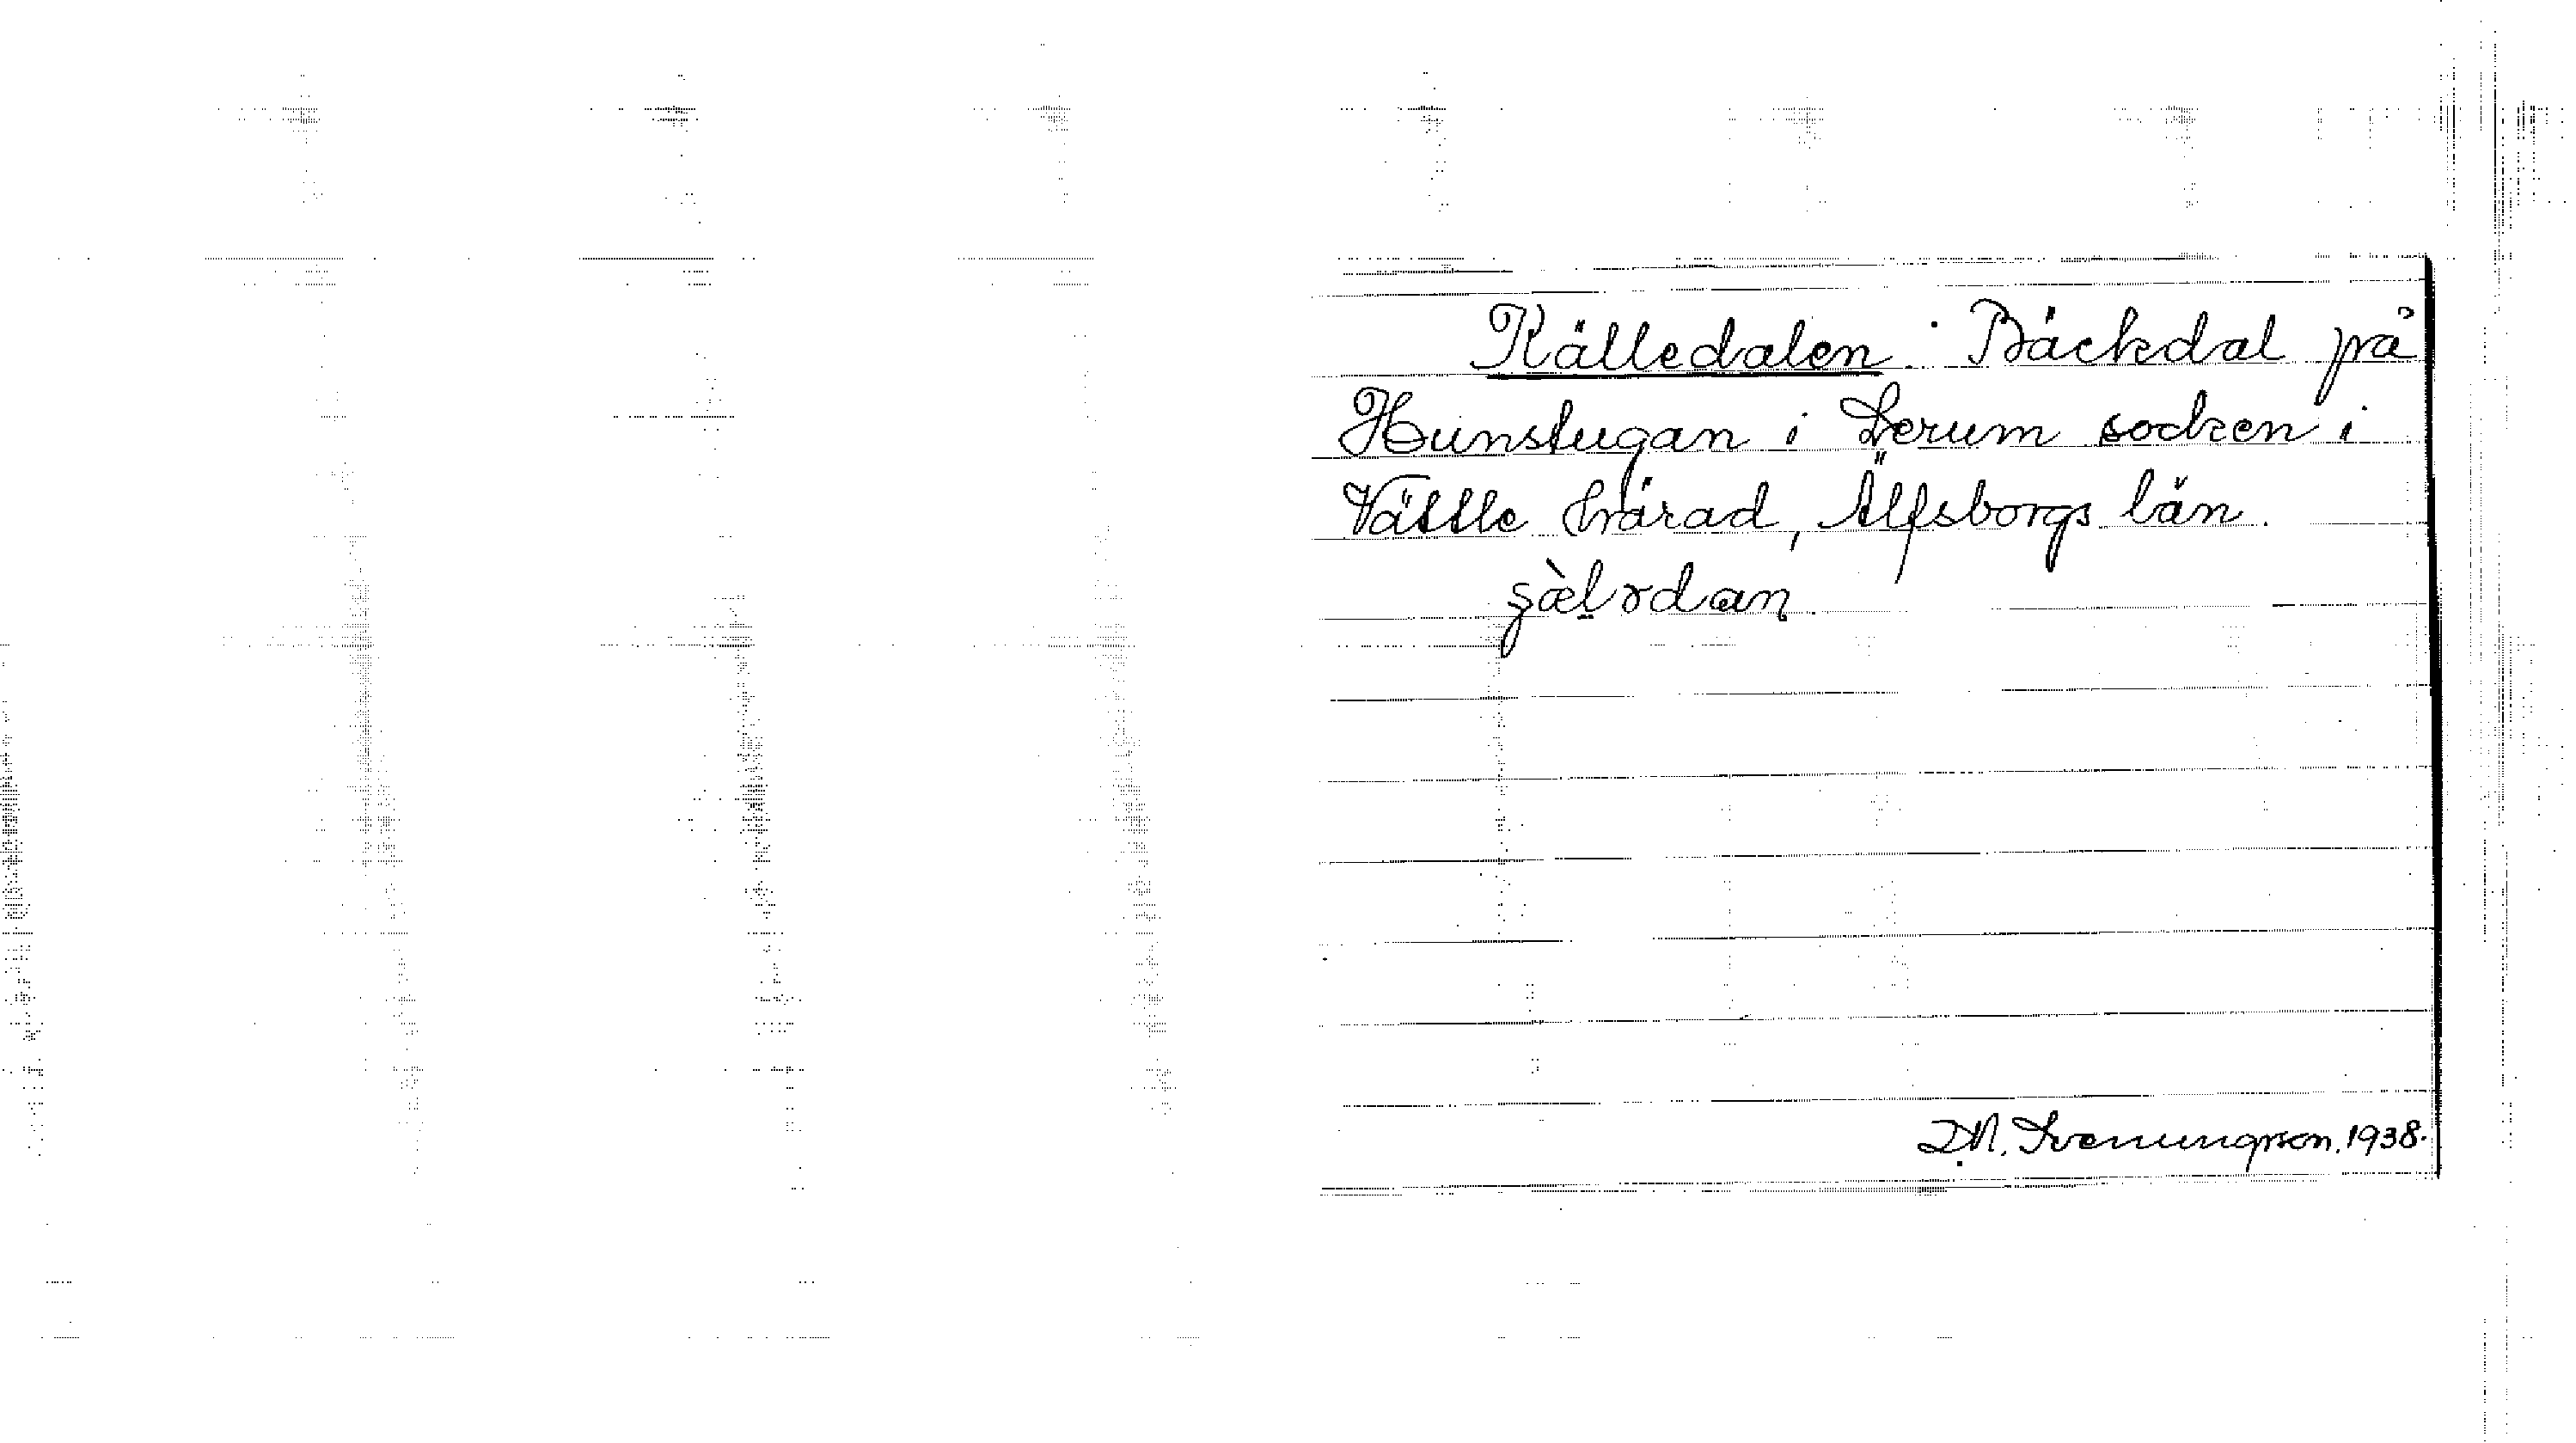 Källedalen. Bäckdal på
Hunstugan i Lerum socken i
Vättle härad, Älfsborgs län.
D.N. Svenungsson. 1938.